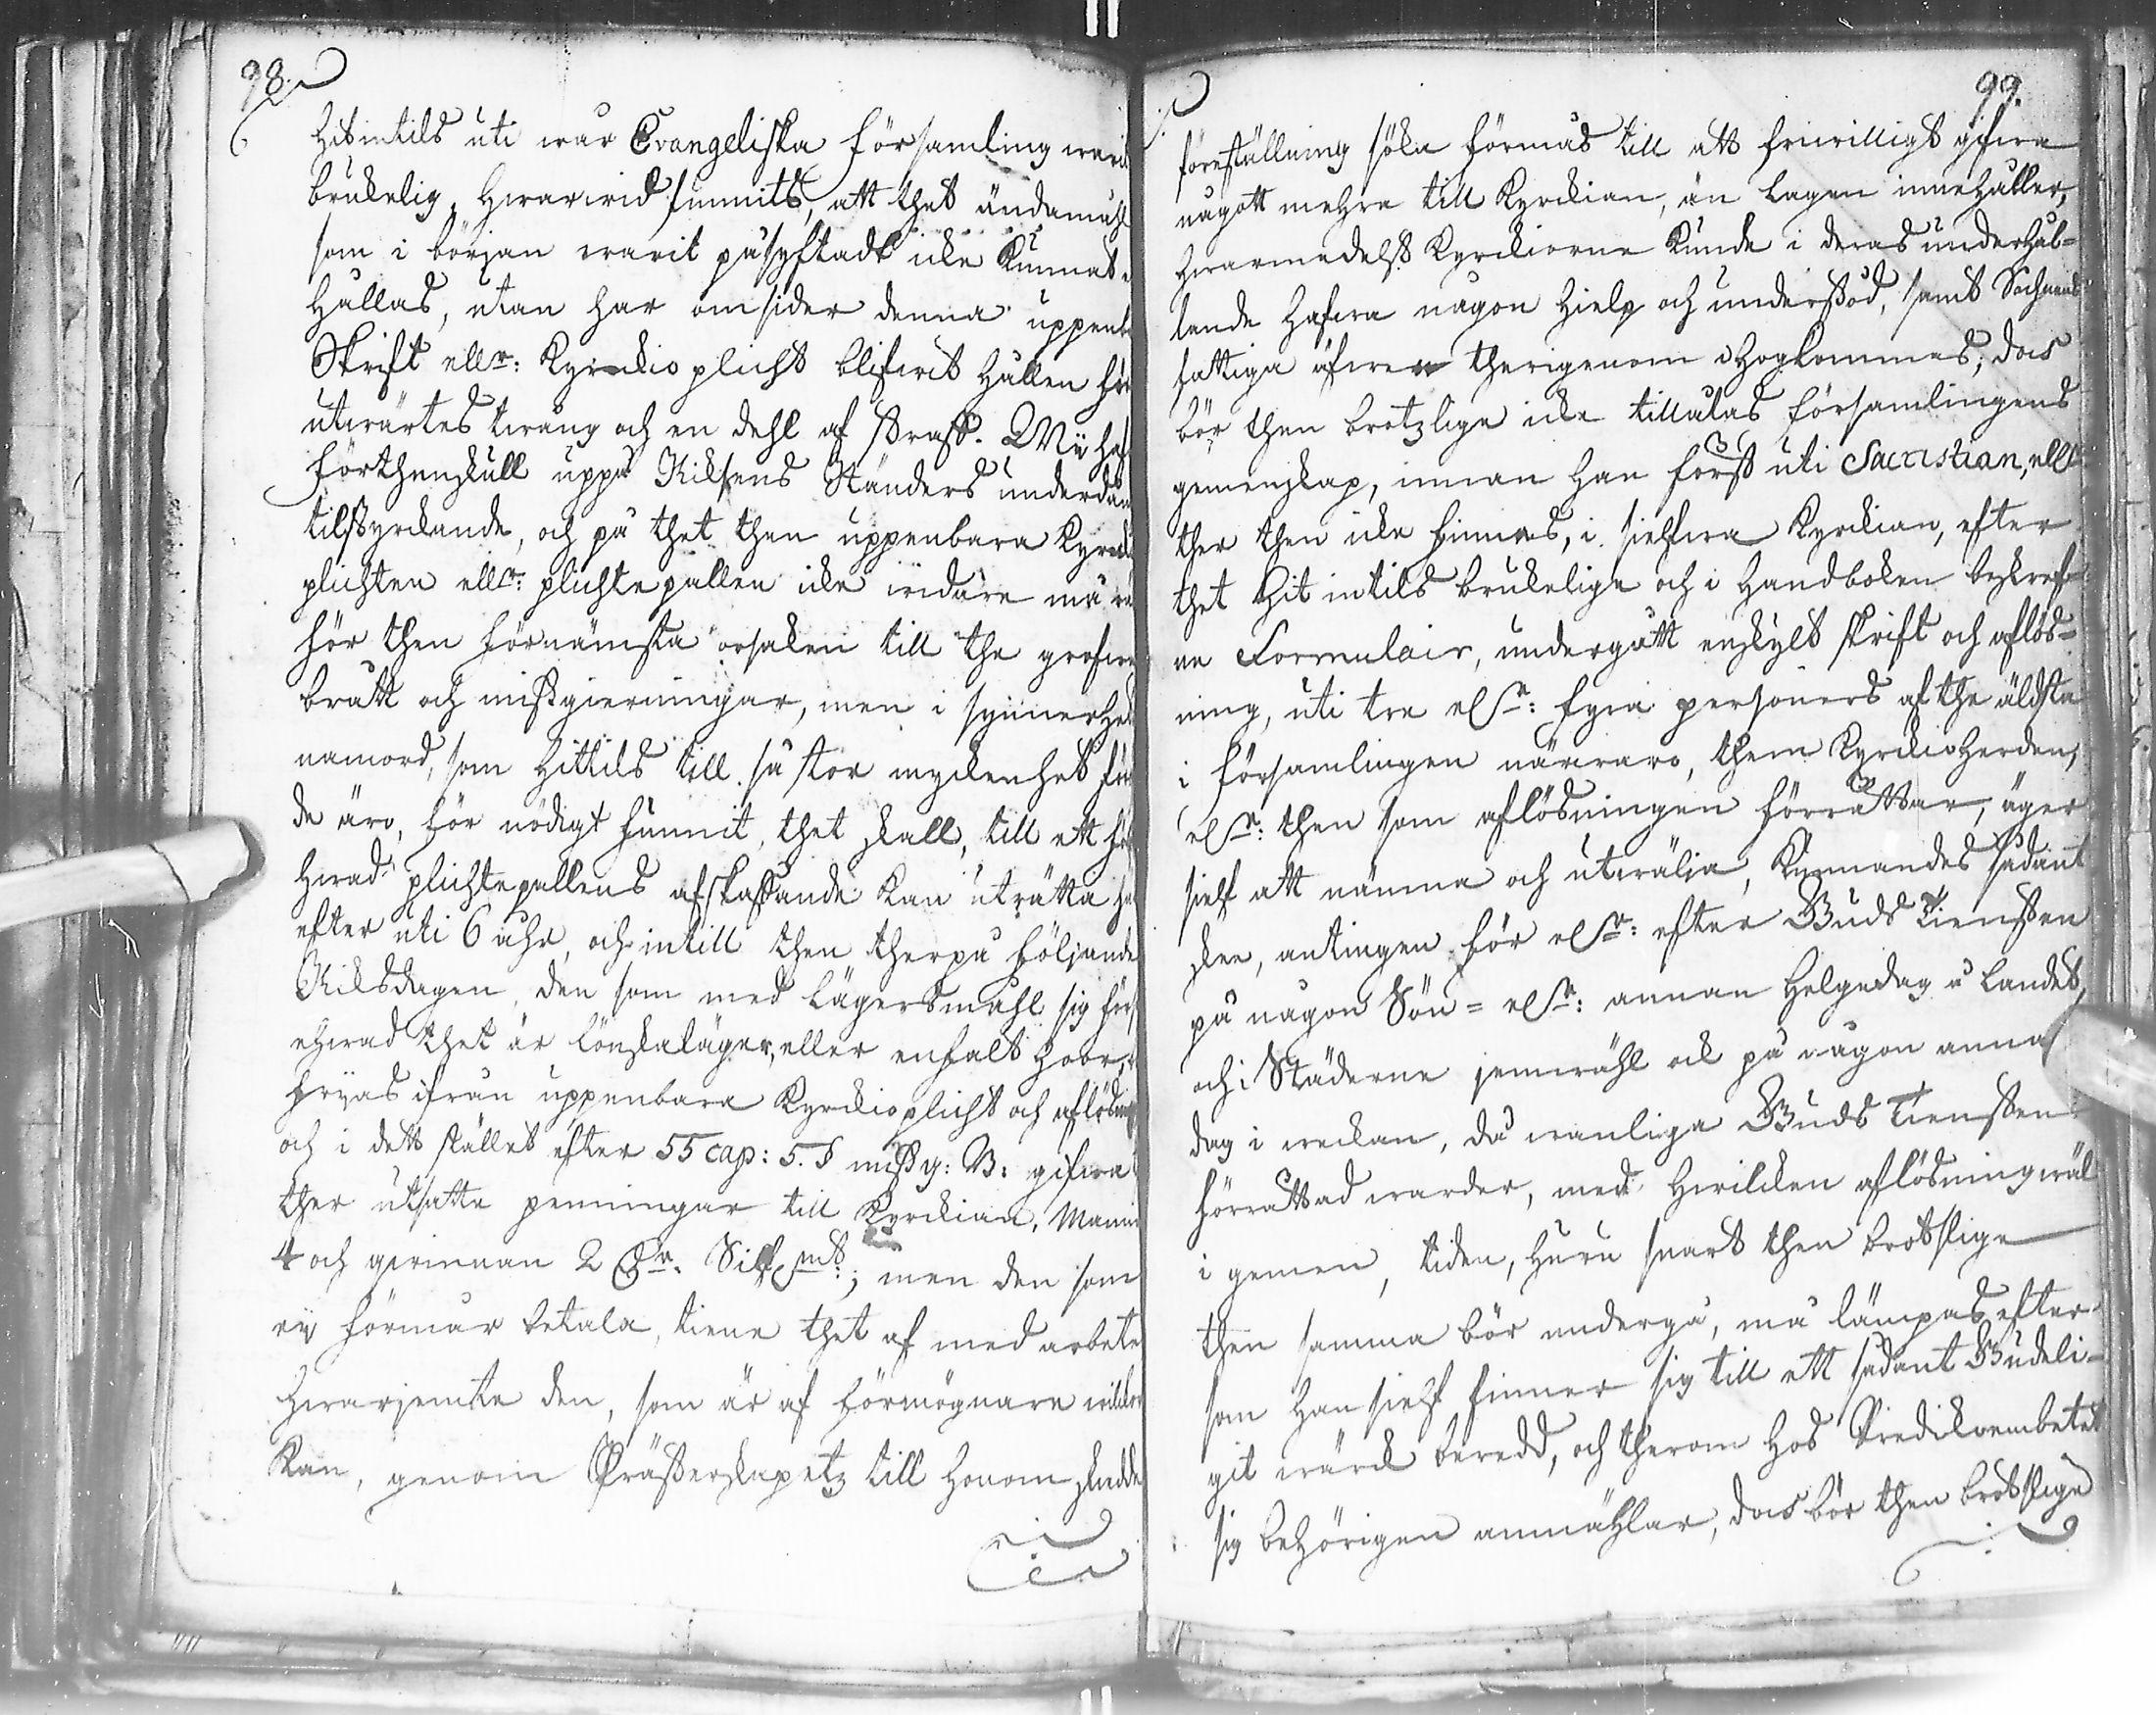 98.
Hitintils uti wår Evangeliska Församling warit
brukelig, Hwarwid funnits, att thet ändamåhl
som i början warit påsyftadt icke kunnat
hållas, utan har omsider denna uppenb
Skrift ell:r Kyrckioplicht blifwit hållen för
utwärtes twång och en dehl af straff. Wii haf
förthenskull uppå Riksens Ständers underdån
tilstyrckande, och på thet then uppenbara Kyrck
plichten ell:r plichtepallen icke widare må wa
för then förnämsta orsaken till the grofwe
brott och missgierningar, men i synnerhet
namord, som hittils till så stor myckenhet för
de äro, för nödigt funnit, thet skall, till ett för
hwad plichtepallens afskaffande kan uträtta hä
efter uti 6 åhr, och intill then therpå följande
Riksdagen, den som med Lägersmåhl sig förs
ehwad thet är Lönskaläger, eller enfalt Hoor,
fryas ifrån uppenbara Kyrckioplicht och aflösning
och i dett stället efter 55 cap: 5. § missg: B: gifwa
ther utsatte penningar till Kyrckian, Mannen
4 och qwinnan 2 D:r Silf:mt:; men den som
eij förmår betala, tiene thet af med arbete
Hwarjemte den, som är af förmögnare wilckor
kan, genom Prästerskapetz till honom skiedde
99.
föreställning söka förmås till att friwilligt gifwa
någott mehra till Kyrckian, än Lagen innehåller,
Hwarmedelst Kyrckiorne kunde i deras underhål-
lande hafwa någon hielp och understöd, samt Sochnens
fattiga äfwen therigenom ihogkommas; Dock
bör then brotzlige icke tillåtas Församlingens
gemenskap, innan han först uti Sacristian, ell
ther then icke finnes, i sielfwa Kyrckian, efter
thet hit intils brukelige och i Handboken beskref-
ne Formulair, undergått enskylt skrift och aflös-
ning, uti tre el:r fyra personers af the äldsta
i Församlingen närwaro, them Kyrckioherden,
el:r then som aflösningen förrättar, äger
sielf att nämna och utwälja, kunnandes sådant
skee, antingen för el:r efter Guds Tiensten
på någon Sön= el:r annan Helgedag å Landet,
och i Städerne jemwähl ock på någon annan
dag i weckan, då wanliga Guds Tiensten
förrättad warder, med hwilcken aflösning wäl
i gemen, tiden, huru snart then brotslige
then samma bör undergå, må lämpas efter
som han sielf finner sig till ett sådant Gudeli-
git wärck beredd, och therom hos Predikoembetet
sig behörigen anmähler, dock bör then brotslige